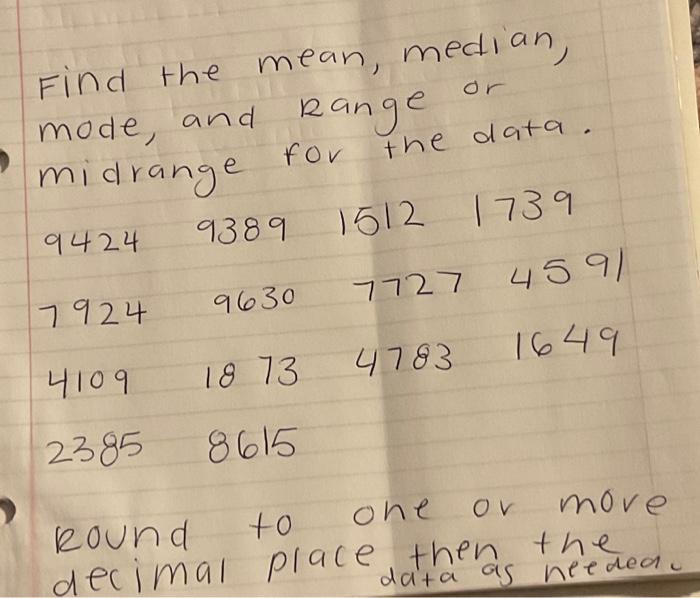 Find the mean, median,
mode, and Range or
midrange for the data.
9424 9389 1512 1739
7924 9630 7727 4591
4109 1873 4783 1649
2385 8615
Round to one or more
decimal place then the
data as needed.